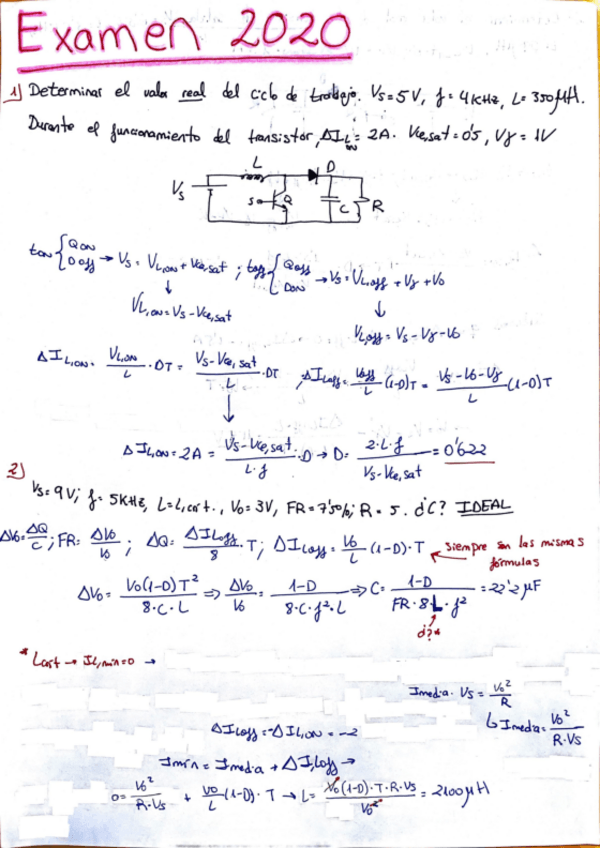 Examen 2020
1) Determinar el valor real del ciclo de trabajo. Vs=5V, f=4KHz, L=350µH.
Durante el funcionamiento del transistor, ΔI_L,on=2A. Vce,sat=0'5, Vγ=1V
L D
Vs S Q C R
ton { Q ON D off → Vs = VL,ON + Vce,sat ; toff { Q off D ON → Vs = VL,off + Vγ + Vo
↓ ↓
VL,ON = Vs - Vce,sat
VL,off = Vs - Vγ - Vo
ΔIL,ON = VL,ON/L · DT = (Vs - Vce,sat)/L · DT , ΔILoff = Voff/L (1-D)T = (Vs - Vo - Vγ)/L (1-D)T
ΔIL,ON = 2A = (Vs - Vce,sat)/(L·f) · D → D = (2·L·f)/(Vs - Vce,sat) = 0'622
2)
Vs = 9V; f = 5KHz, L = L,crit., Vo = 3V, FR = 7'5%; R = 5. ¿C? IDEAL
ΔVo = ΔQ/C ; FR = ΔVo/Vo ; ΔQ = ΔILoff/8 · T ; ΔILoff = Vo/L (1-D)·T
siempre son las mismas
fórmulas
ΔVo = Vo(1-D)T²/(8·C·L) ⇒ ΔVo/Vo = (1-D)/(8·C·f²·L) ⇒ C = (1-D)/(FR·8·L·f²) = 22'2 µF
¿?*
* Lcrit → IL,min=0 →
Imedia · Vs = Vo²/R
↳ Imedia = Vo²/(R·Vs)
ΔILoff = -ΔIL,ON = -2
Imin = Imedia + ΔI,Loff →
0 = Vo²/(R·Vs) + Vo/L (1-D)·T → L = Vo(1-D)·T·R·Vs/Vo² = 2100µH